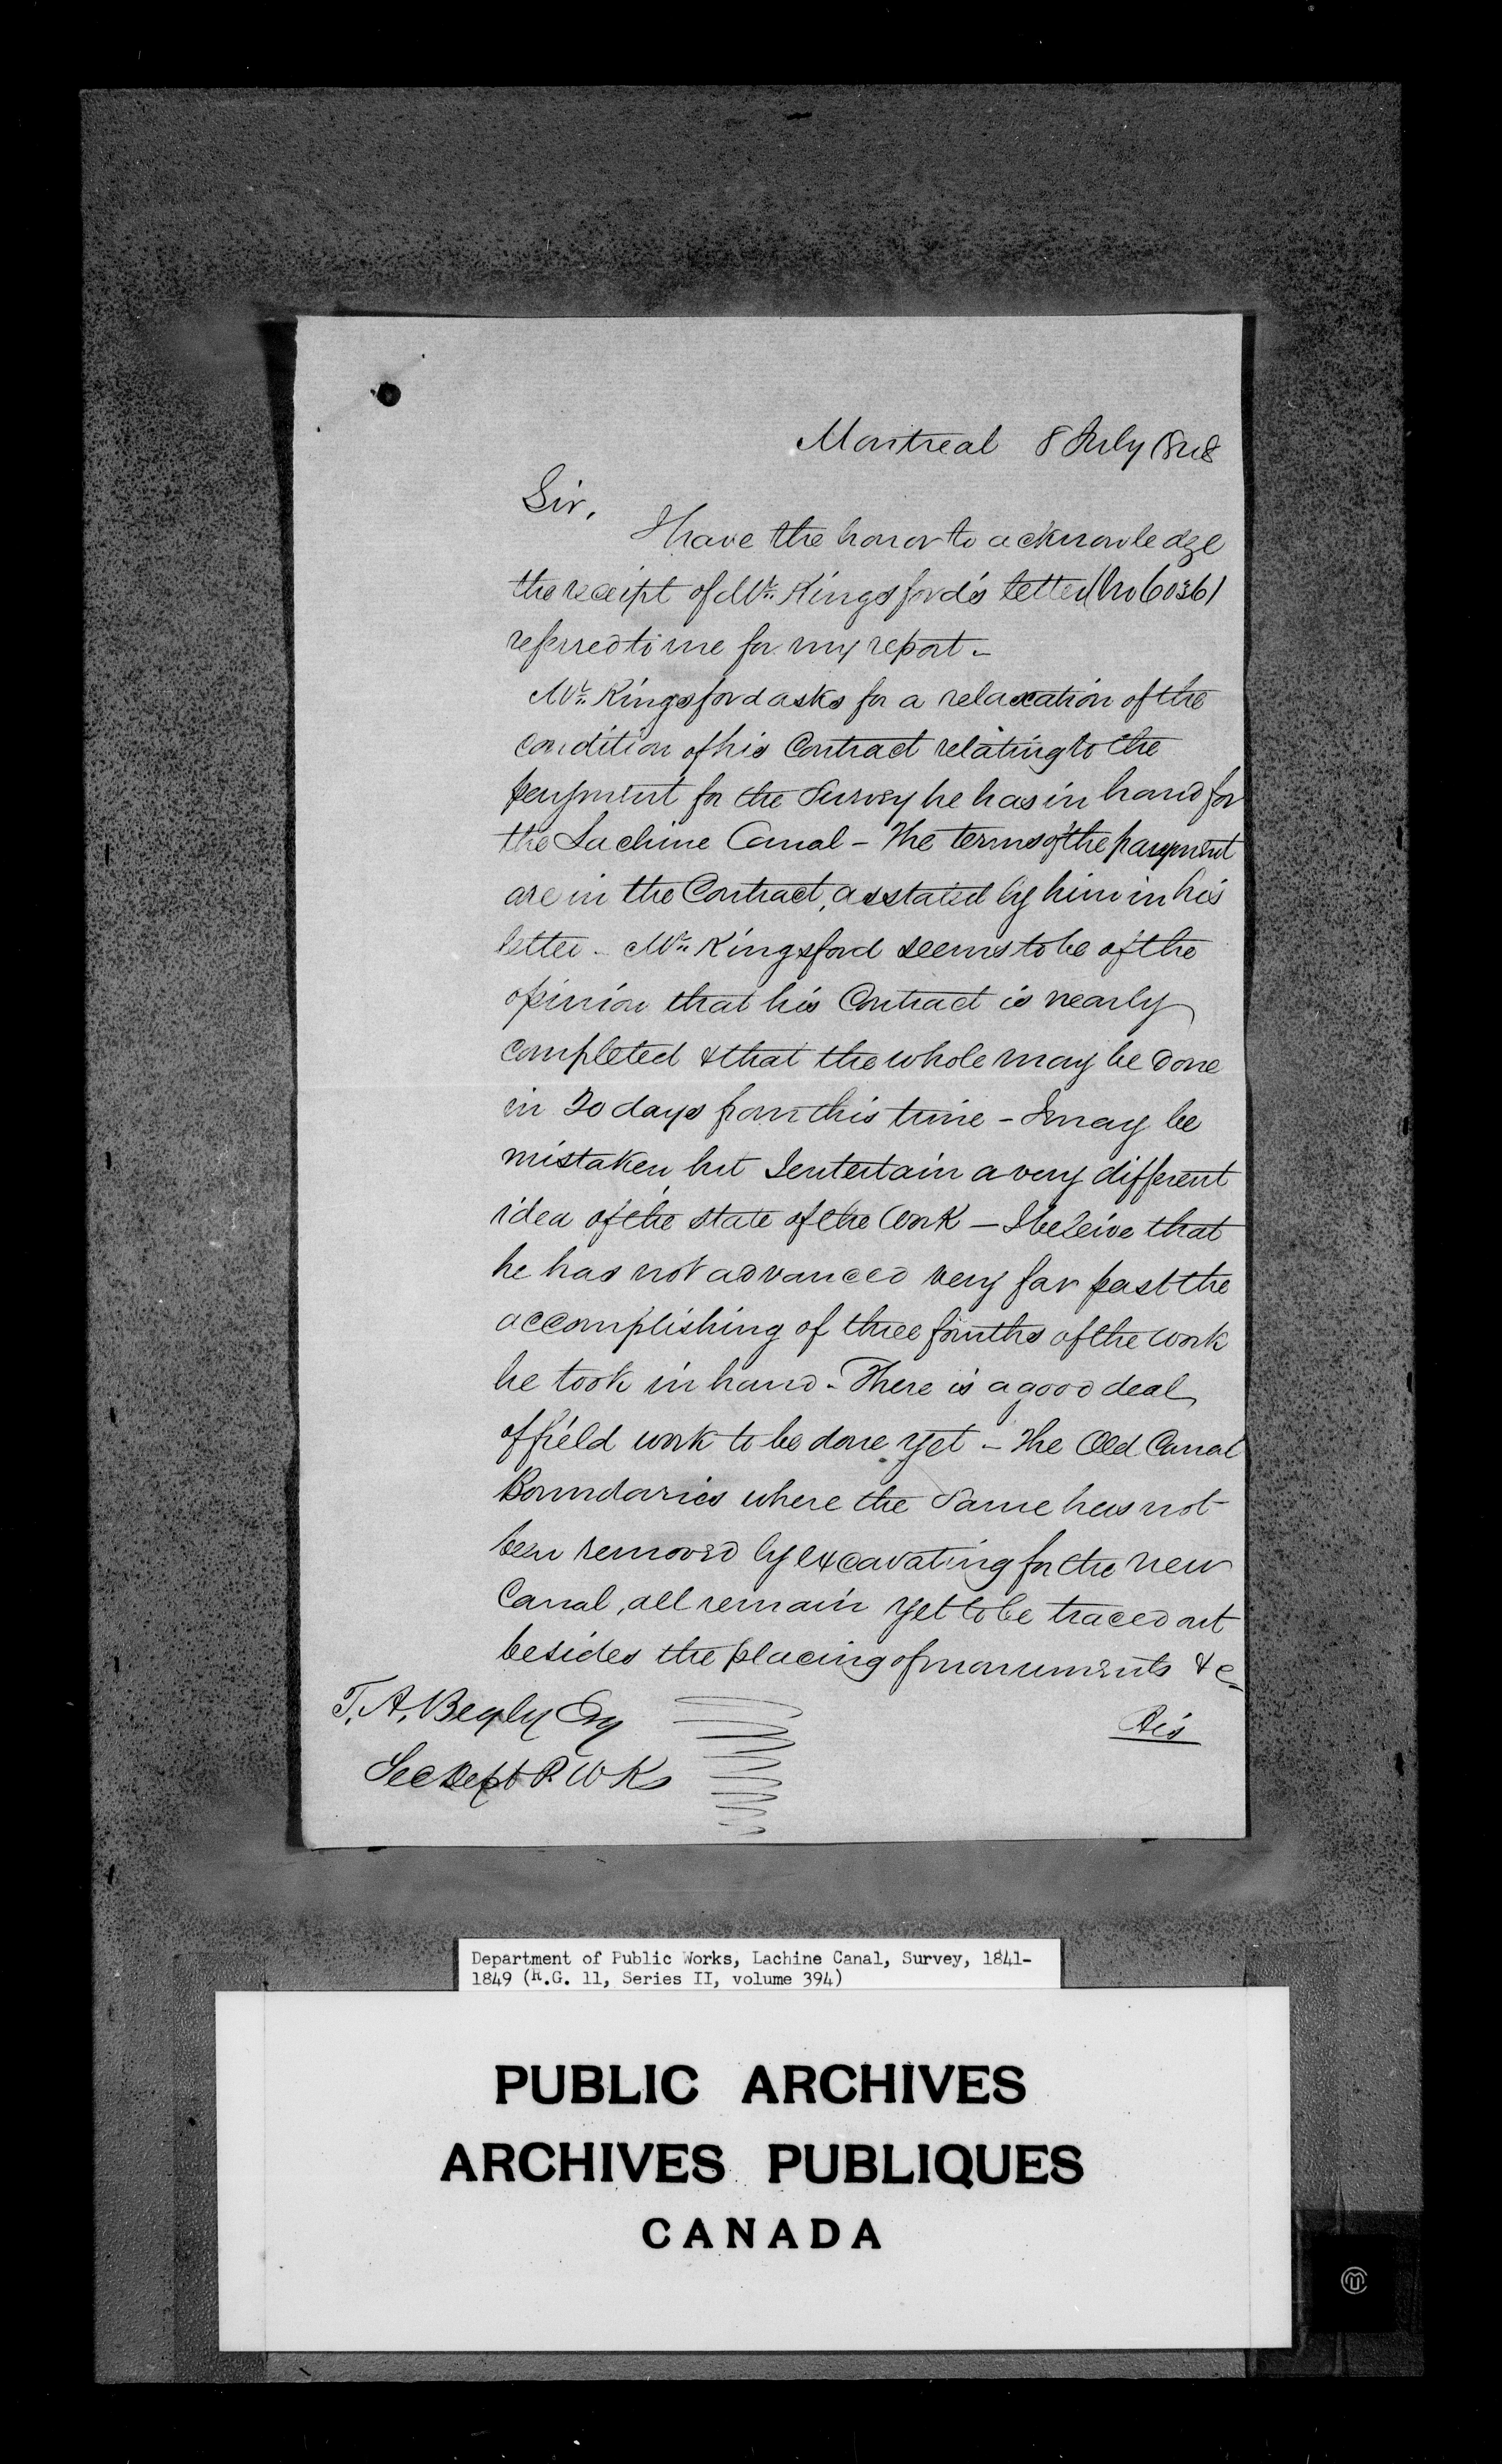 Montreal 8 July 1848
Sir,
I have the honor to acknowledge
the receipt of Mr. Kingsford's letter (No 6036)
referred to me for my report -
Mr. Kingsford asks for a relaxation of the
condition of his Contract relating to the
payment for the Survey he has in hand for
the Lachine Canal - The terms of the payment
are in the Contract, as stated by him in his
letter - Mr. Kingsford seems to be of the
opinion that his Contract is nearly
completed & that the whole may be done
in 20 days from this time - I may be
mistaken, but I entertain a very different
idea of the state of the Work - I beleive that
he has not advanced very far past the
accomplishing of three fourths of the work
he took in hand - There is a good deal
of field work to be done yet - The Old Canal
Boundaries where the Same has not
been removed by excavating for the new
Canal, all remain yet to be traced out
besides the placing of monuments &c
T. A. Begly Esq
Sec Dept P. W Ks
Department of Public Works, Lachine Canal, Survey, 1841-
1849 (R.G. 11, Series II, volume 394)
PUBLIC ARCHIVES
ARCHIVES PUBLIQUES
CANADA